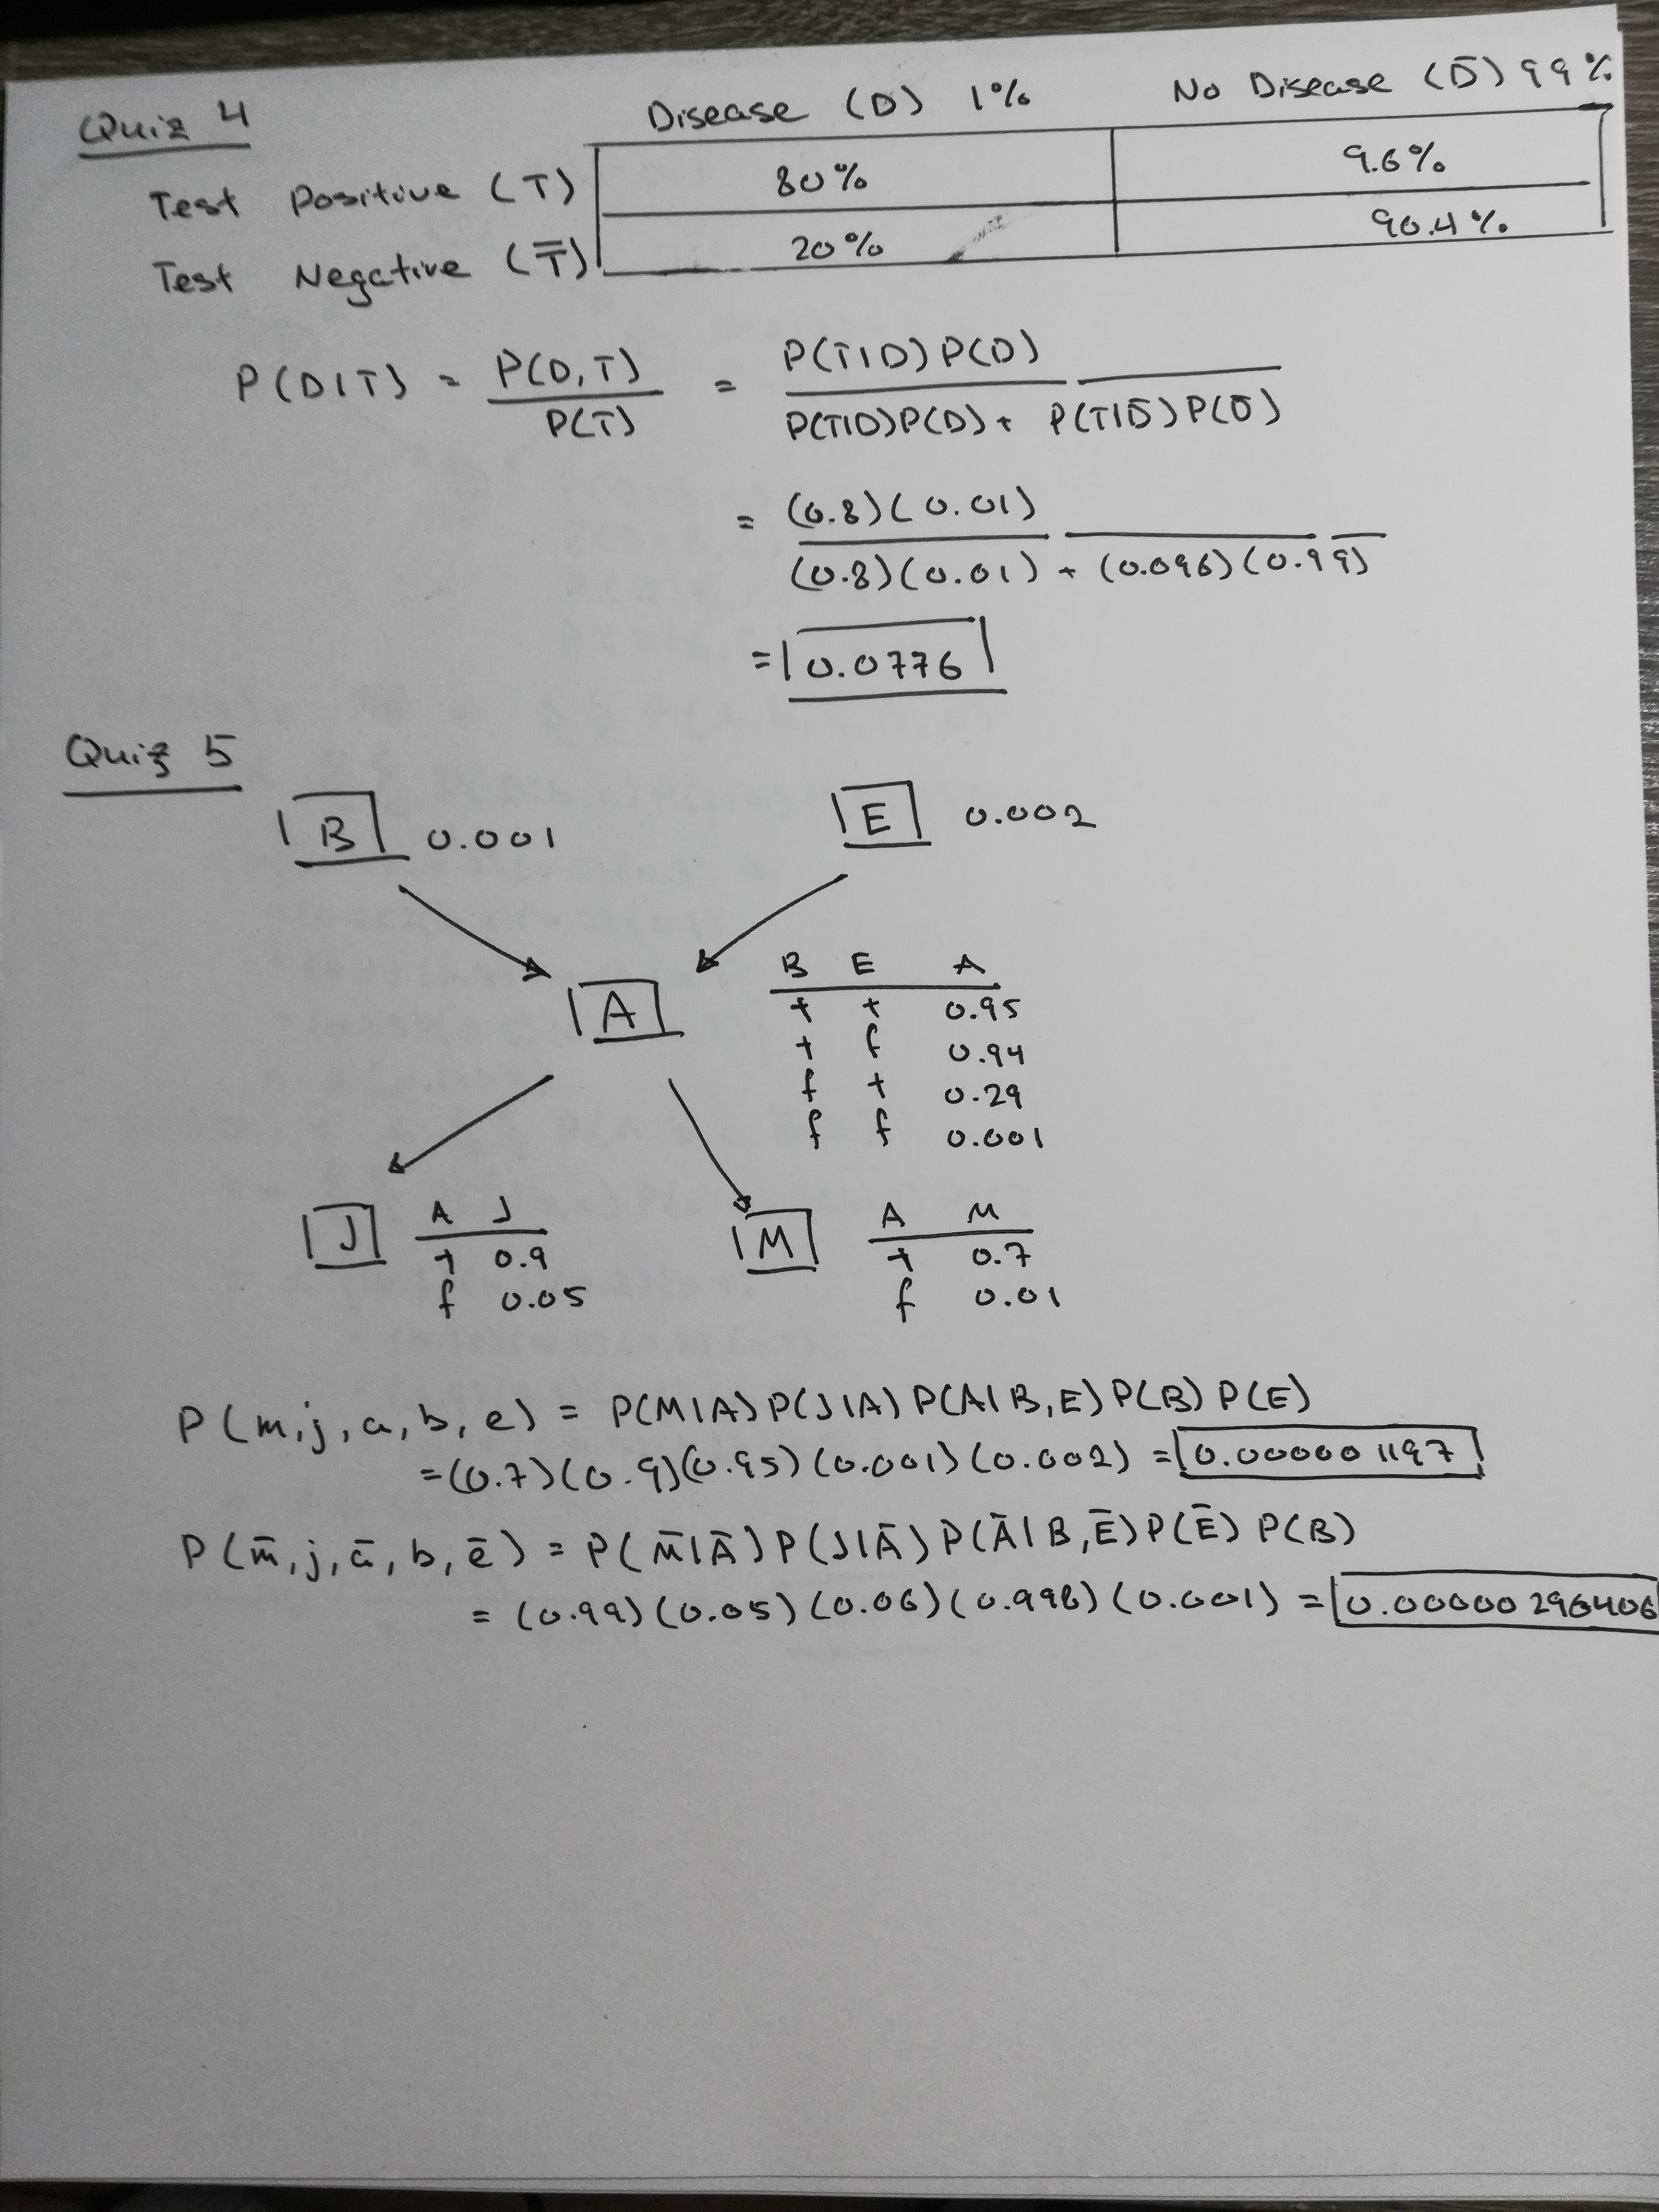 Quiz 4
Disease (D) 1% No Disease (D̄) 99%
Test Positive (T) 80% 9.6%
Test Negative (T̄) 20% 90.4%
P(D|T) = P(D,T) / P(T) = P(T|D)P(D) / P(T|D)P(D) + P(T|D̄)P(D̄)
= (0.8)(0.01) / (0.8)(0.01) + (0.096)(0.99)
= 0.0776
Quiz 5
B 0.001 E 0.002
A
B E A
t t 0.95
t f 0.94
f t 0.29
f f 0.001
J
A J
t 0.9
f 0.05
M
A M
t 0.7
f 0.01
P(m,j,a,b,e) = P(M|A)P(J|A)P(A|B,E)P(B)P(E)
= (0.7)(0.9)(0.95)(0.001)(0.002) = 0.000001197
P(m̄,j,ā,b,ē) = P(M̄|Ā)P(J|Ā)P(Ā|B,Ē)P(Ē)P(B)
= (0.99)(0.05)(0.06)(0.998)(0.001) = 0.00000296406